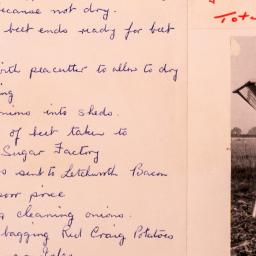 because not dry.
beet ends ready for beet
with peacutter to allow to dry
onions into sheds.
of beet taken to
Sugar Factory
sent to Letchworth Bacon
poor price
cleaning onions.
bagging Red Craig Potatoes
Tot